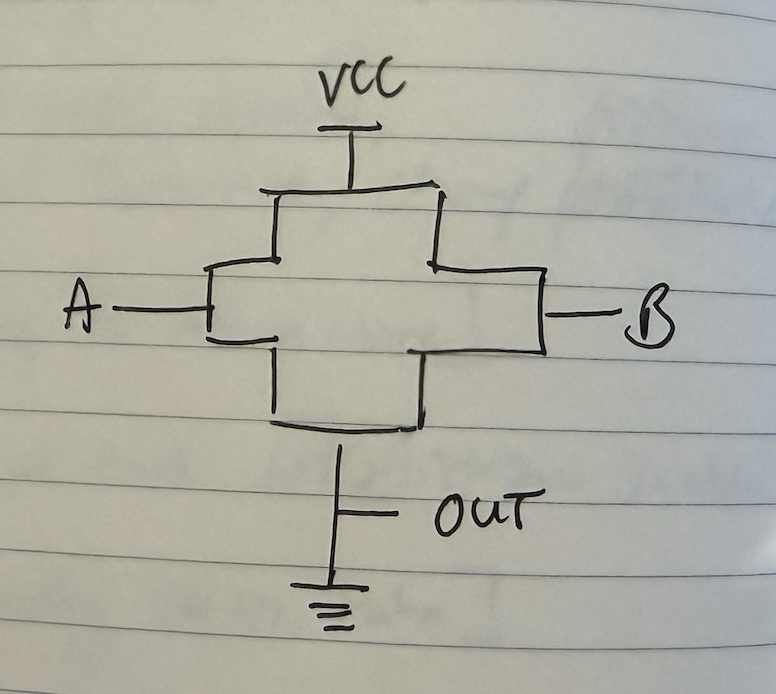 VCC
A B
OUT